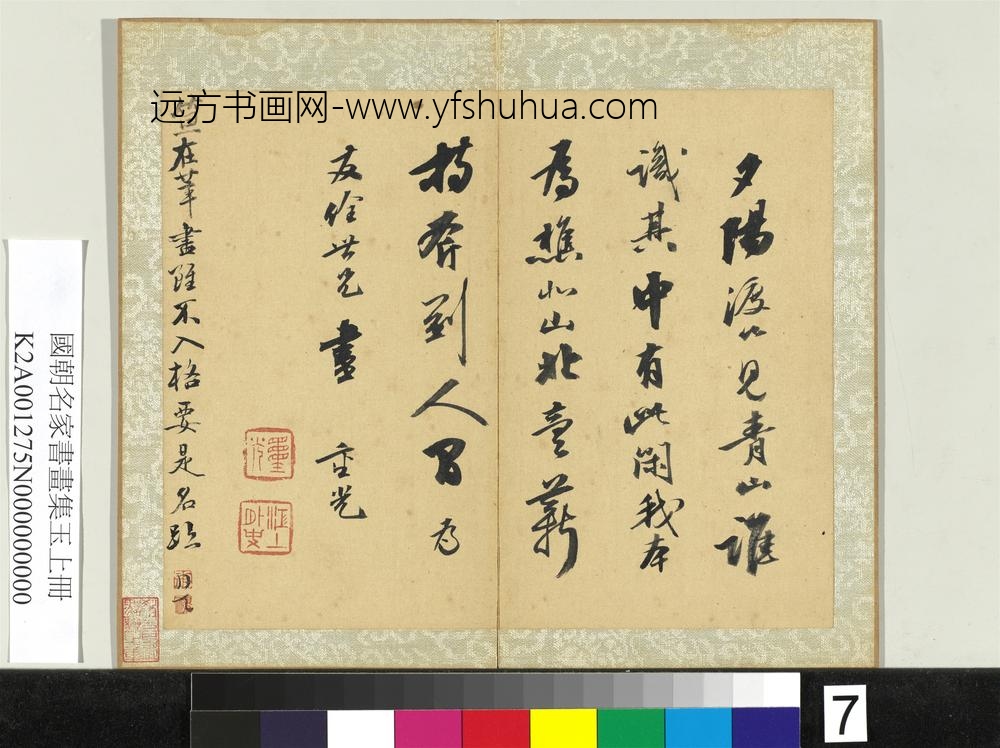 远方书画网-www.yfshuhua.com
夕陽渡口見青山誰
識其中有此閑我本
為樵北山北賣薪
持斧到人間 為
友徐世兄書 重光
在筆畫雖不入格要是名跡
重光
江上外史
國朝名家書畫集玉上冊
K2A001275N000000000
7